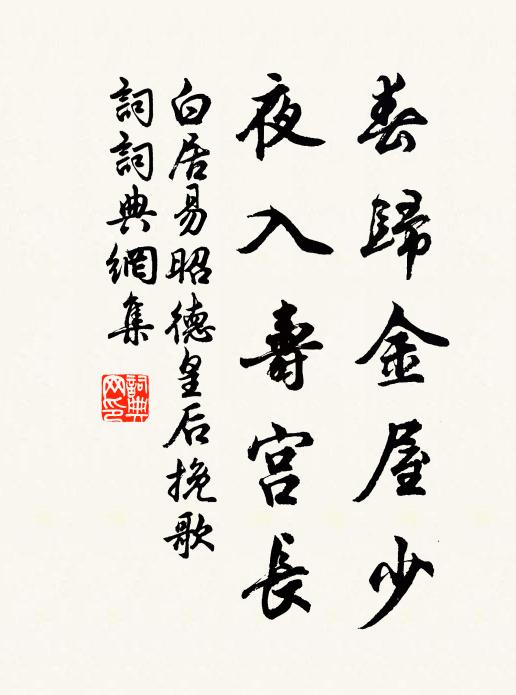 春歸金屋少
夜入壽宮長
白居易昭德皇后挽歌
詞詞典網集
詞典
网印